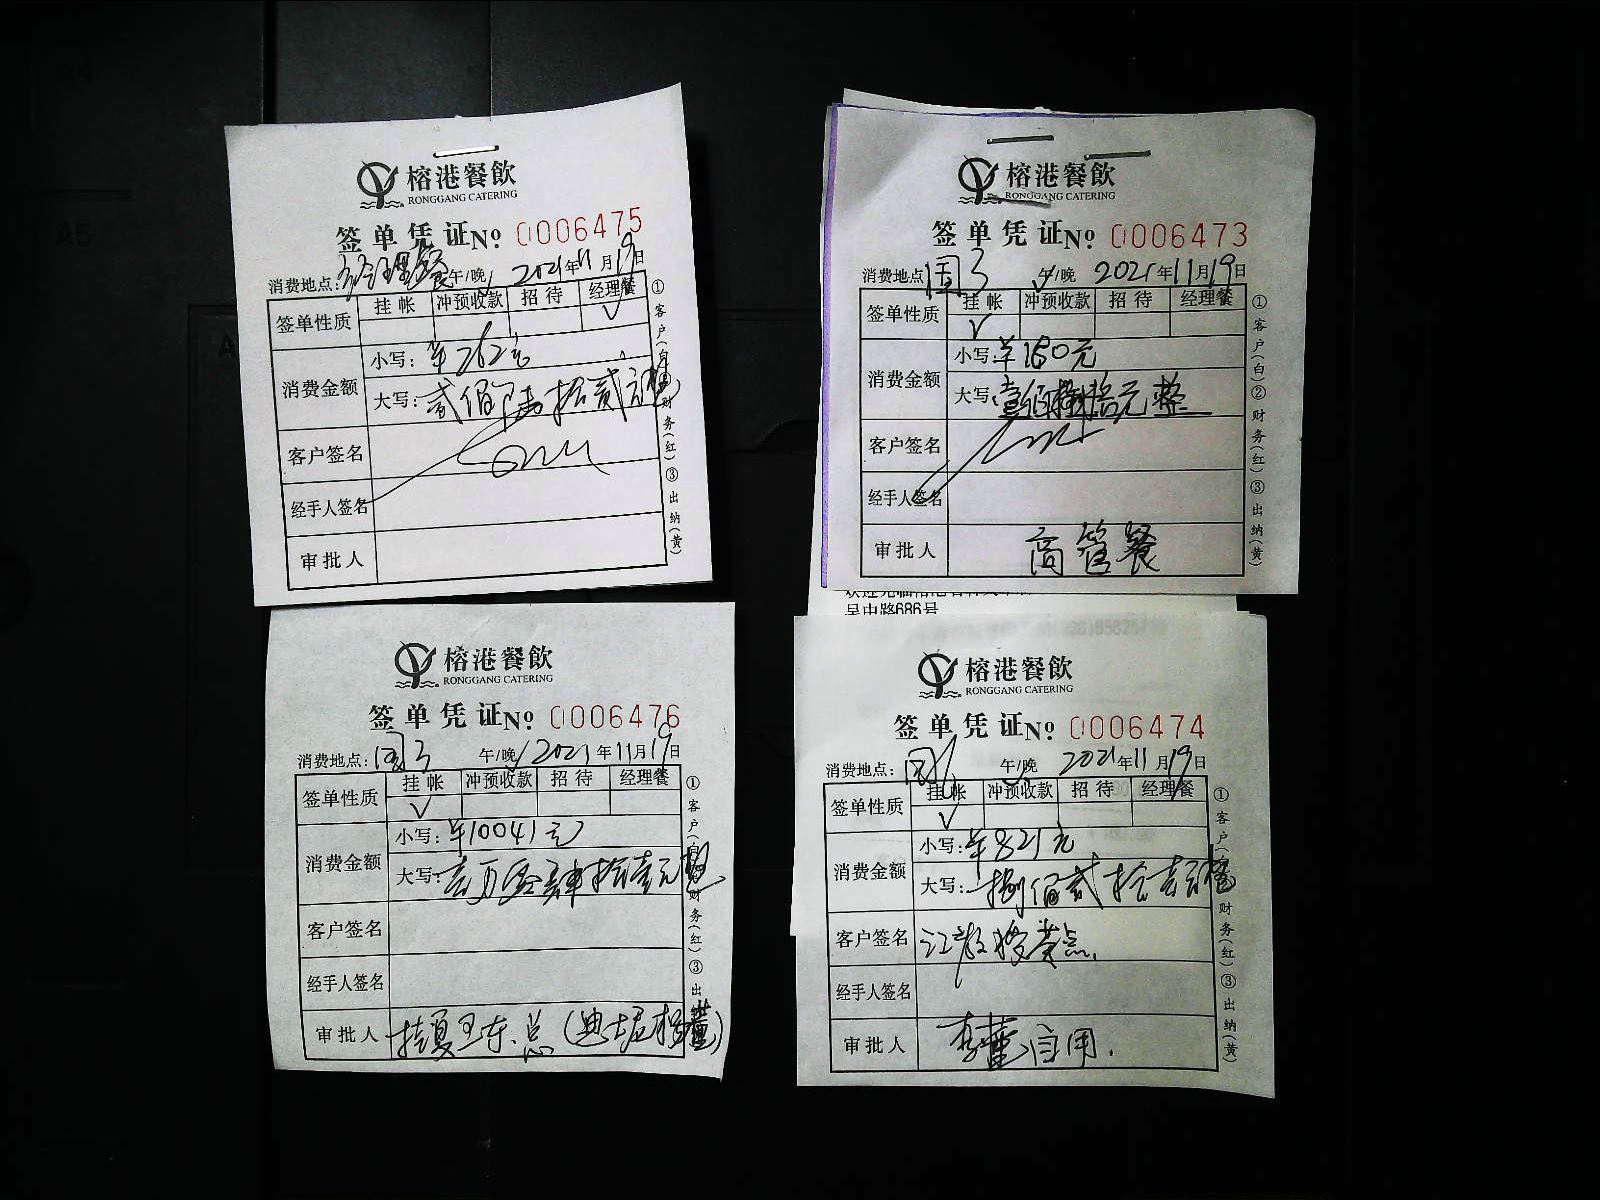 榕港餐飲
RONGGANG CATERING
签单凭证№ 0006475
消费地点：经理餐 午/晚√ 2021年11月19日
签单性质 挂帐 冲预收款 招待 经理餐
√
消费金额 小写：￥262元
大写：贰佰陆拾贰元整
客户签名
经手人签名
审批人
①客户(白)②财务(红)③出纳(黄)
榕港餐飲
RONGGANG CATERING
签单凭证№ 0006473
消费地点 国3 午√/晚 2021年11月19日
签单性质 挂帐 冲预收款 招待 经理餐
√
消费金额 小写：￥180元
大写：壹佰捌拾元整
客户签名
经手人签名
审批人 高管餐
①客户(白)②财务(红)③出纳(黄)
吴中路686号
榕港餐飲
RONGGANG CATERING
签单凭证№ 0006476
消费地点：国3 午/晚√ 2021年11月19日
签单性质 挂帐 冲预收款 招待 经理餐
√
消费金额 小写：￥10041元
大写：壹万零肆拾壹元整
客户签名
经手人签名
审批人 挂夏卫东总
①客户(白)②财务(红)③出
榕港餐飲
RONGGANG CATERING
签单凭证№ 0006474
消费地点： 午/晚√ 2021年11月19日
签单性质 挂帐 冲预收款 招待 经理餐
√
消费金额 小写：￥821元
大写：捌佰贰拾壹元整
客户签名 江教授茶点
经手人签名
审批人 李董自用
①客户(白)②财务(红)③出纳(黄)